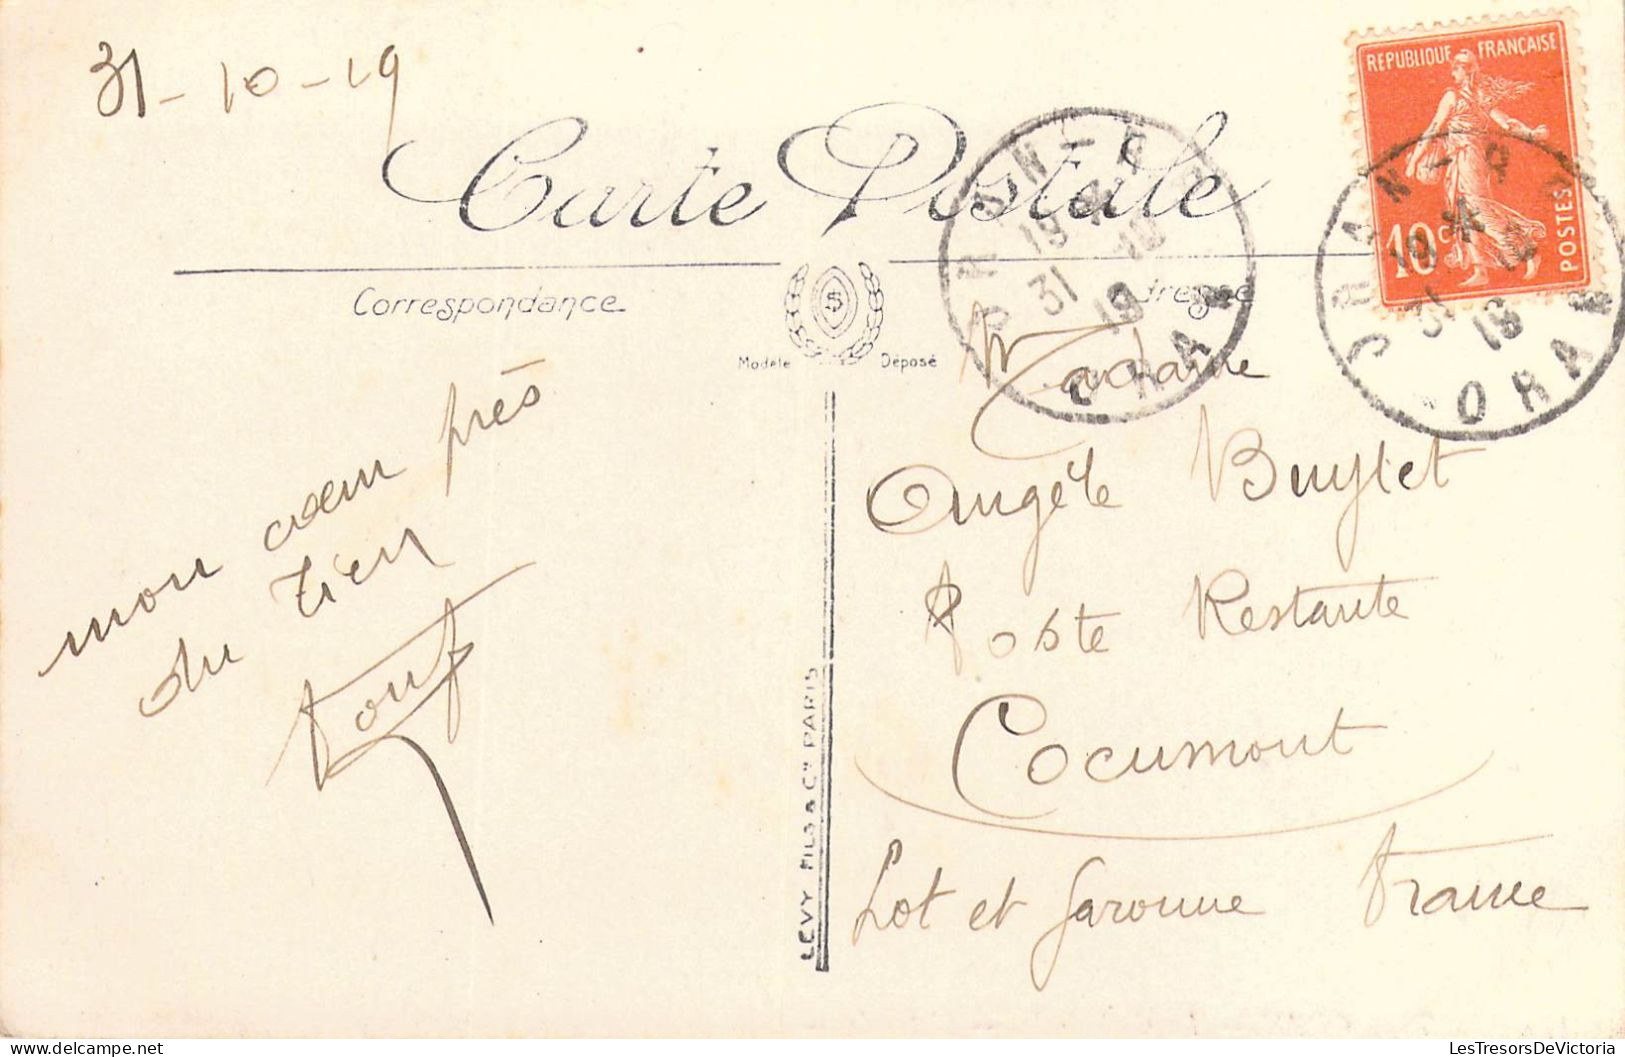 31-10-19
REPUBLIQUE FRANÇAISE
10c POSTES
Carte Postale
ORAN-RP
19 *
31 10
19
ORAN
Correspondance
Adresse
Modèle Déposé
mon cœur près
du tien
Madame
Angèle Buytet
Poste Restante
Cocumont
Lot et Garonne France
LEVY FILS & Cie PARIS
LesTresorsDeVictoria